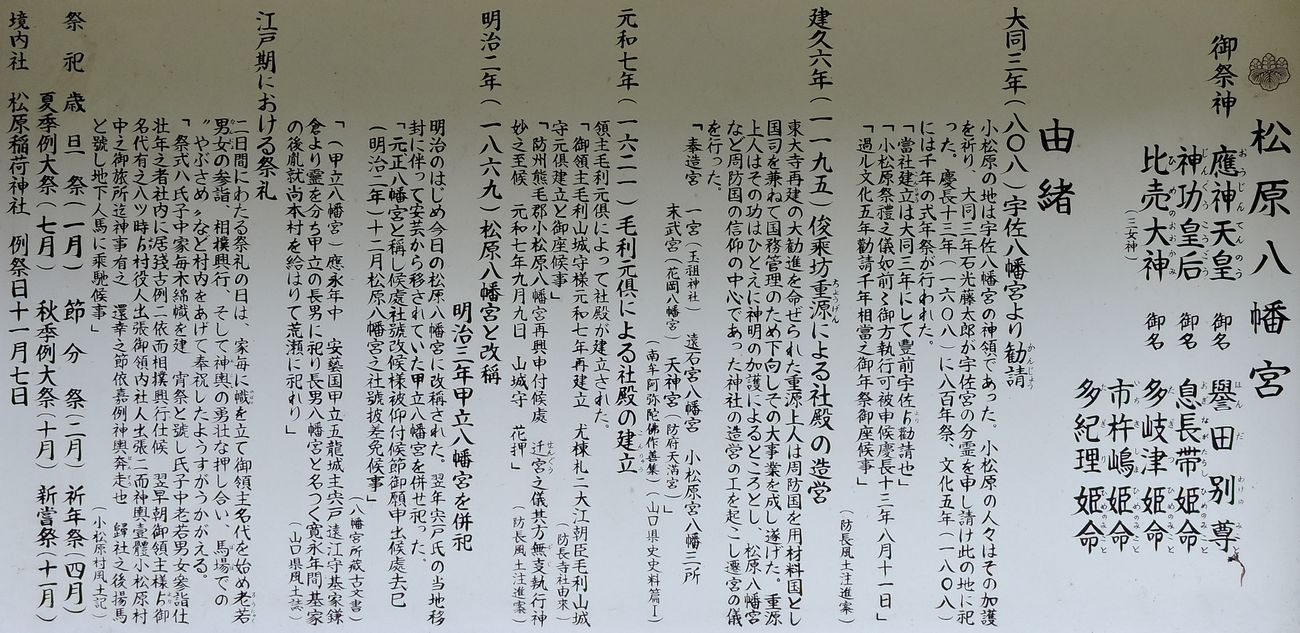 松原八幡宮
御祭神
應神天皇 御名 譽田別尊
おうじんてんのう ほんだわけのみこと
神功皇后 御名 息長帯姫命
じんぐうこうごう おきながたらしひめのみこと
比売大神 御名 多岐津姫命
ひめのおおかみ たぎつひめのみこと
(三女神)
市杵嶋姫命
多紀理姫命
由緒
大同三年(八〇八)宇佐八幡宮より勧請
かんじょう
小松原の地は宇佐八幡宮の神領であった。小松原の人々はその加護
を祈り、大同三年石光藤太郎が宇佐宮の分霊を申し請け此の地に祀
った。慶長十三年(一六〇八)に八百年祭、文化五年(一八〇八)
には千年の式年祭が行われた。
「當社建立は大同三年にして豐前宇佐ゟ勧請也」
「小松原祭禮之儀如前〻御方執行可被申候慶長十三年八月十一日」
「過ル文化五年勧請千年相當之御年祭御座候事」
(防長風土注進案)
建久六年(一一九五)俊乘坊重源による社殿の造営
ちょうげん
東大寺再建の大勧進を命ぜられた重源上人は周防国を用材料国とし
国司を兼ねて国務管理のため下向しその大事業を成し遂げた。重源
上人はその功はひとえに神明の加護によるところとし、松原八幡宮
など周防国の信仰の中心であった神社の造営の工を起こし遷宮の儀
を行った。
「奉造宮 一宮(玉祖神社) 遠石宮八幡宮 小松原宮八幡三所
末武宮(花岡八幡宮) 天神宮(防府天満宮)
(南牟阿弥陀佛作善集)(山口県史史料篇Ⅰ)
元和七年(一六二一)毛利元倶による社殿の建立
こんりゅう
領主毛利元倶によって社殿が建立された。
「御領主毛利山城守様元和七年再建立 尤棟札ニ大江朝臣毛利山城
守元倶建立と御座候事」
(防長寺社由来)
「防州熊毛郡小松原八幡宮再興申付候處 迁宮之儀其方無支執行神
せんぐう
妙之至候 元和七年九月九日 山城守 花押」
(防長風土注進案)
明治二年(一八六九)松原八幡宮と改稱
明治三年甲立八幡宮を併祀
明治のはじめ今日の松原八幡宮に改称された。翌年宍戸氏の当地移
封に伴って安芸から移されていた甲立八幡宮を併せ祀った。
「元正八幡宮と稱し候處社號改候様被仰付候節御願申出候處去巳
(明治二年)十二月松原八幡宮之社號披差免候事」
(八幡宮所蔵古文書)
「(甲立八幡宮)應永年中 安藝国甲立五龍城主宍戸遠江守基家鎌
倉より霊を分ち甲立の長男に祀り長男八幡宮と名つく寛永年間基家
の後胤就尚本村を給はりて荒瀬に祀れり」
(山口県風土誌)
江戸期における祭礼
二日間にわたる祭礼の日は、家毎に幟を立て御領主名代を始め老若
男女の参詣 相撲興行、そして神輿の勇壮な押し合い、馬場での
〝やぶさめ〟など村内をあげて奉祝したようすがうかがえる。
「祭式八氏子中家毎木綿幟を建 宵祭と號し氏子中老若男女参詣仕
壮年之者社内に居残古例ニ依而相撲興行仕候 翌早朝御領主様ゟ御
名代有之八ツ時ゟ村役人出張御領内社人出張ニ而神輿壹體小松原村
中之御旅所迄神事有之 還幸之節依嘉例神輿奔走也 歸社之後揚馬
と號し地下人馬に乘馳候事」
(小松原村風土記)
祭祀 歳旦祭(一月) 節分祭(二月) 祈年祭(四月)
夏季例大祭(七月) 秋季例大祭(十月) 新嘗祭(十一月)
境内社 松原稲荷神社 例祭日十一月七日